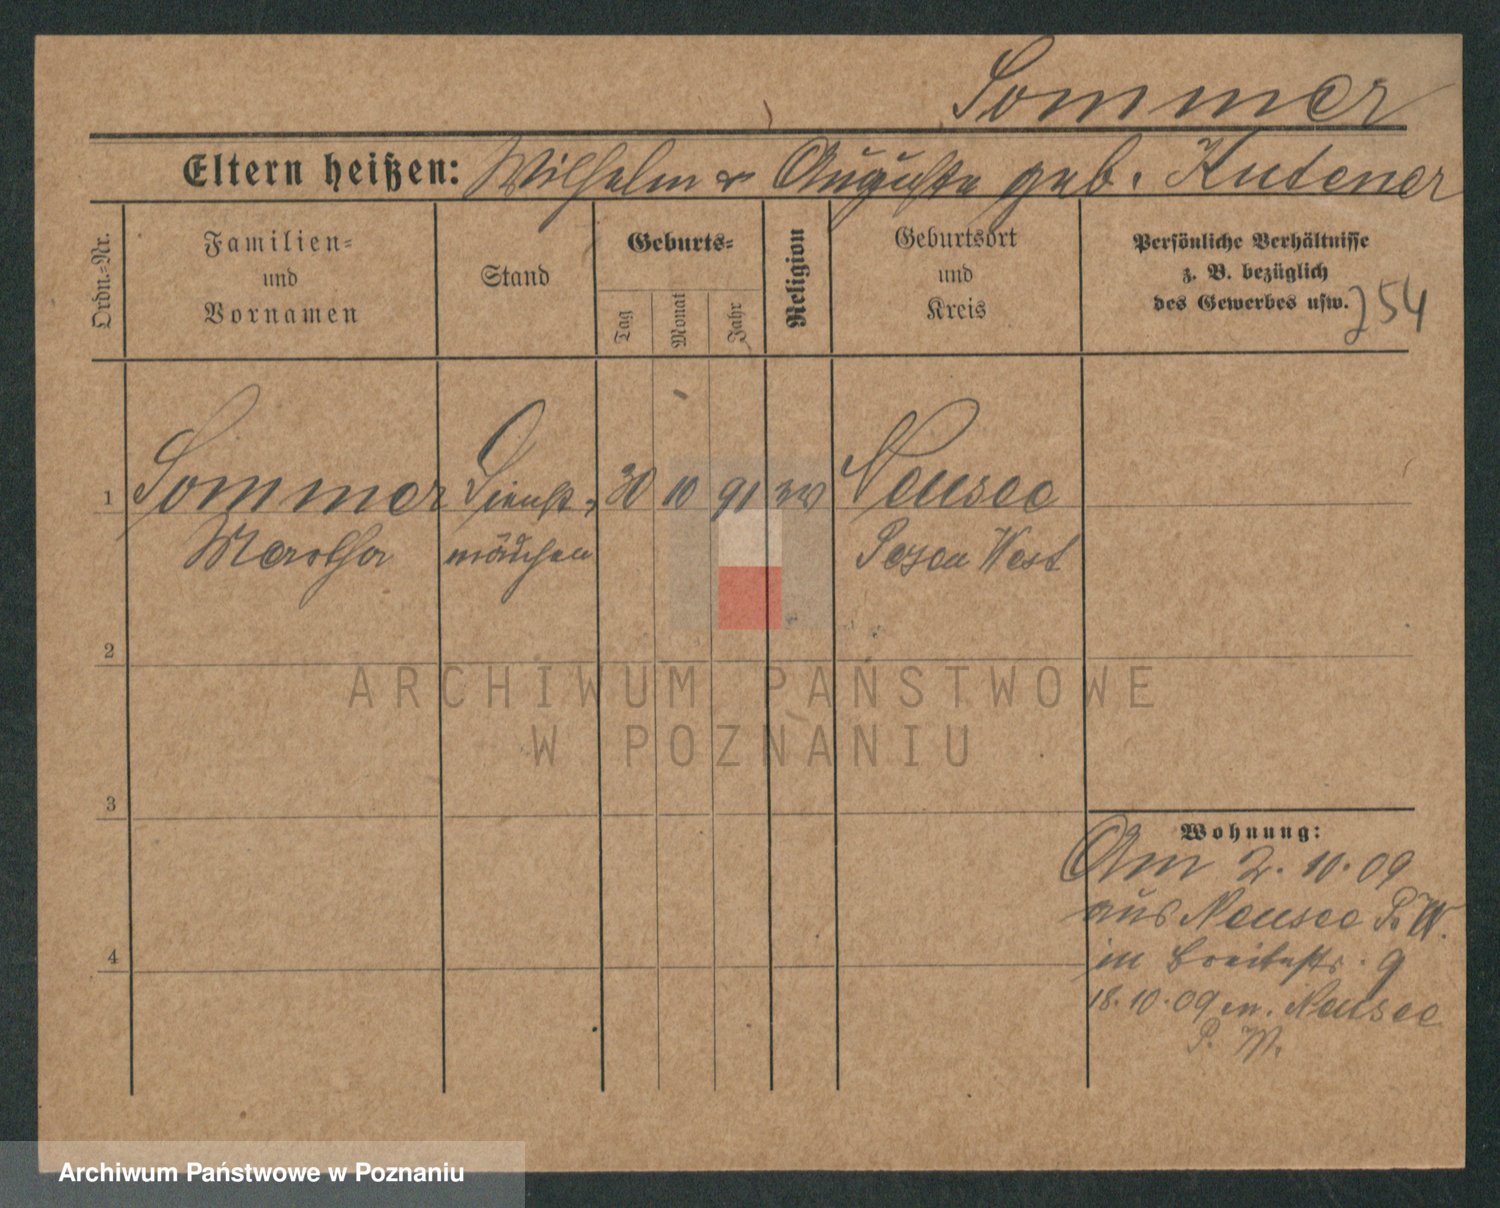 Sommer
Eltern heißen: Wilhelm u Auguste geb. Kutener
Ordn.=Nr.
Familien=
und
Vornamen
Stand
Geburts=
Tag
Monat
Jahr
Religion
Geburtsort
und
Kreis
Persönliche Verhältnisse
z. B. bezüglich
des Gewerbes usw.
254
1 Sommer Dienst= 30 10 91 Neusee
Martha mädchen Posen West
2
3
4
Wohnung:
Am 2. 10. 09
aus Neusee P. W.
in Breitestr. 9
18. 10. 09 n. Neusee
P. W.
ARCHIWUM PAŃSTWOWE
W POZNANIU
Archiwum Państwowe w Poznaniu